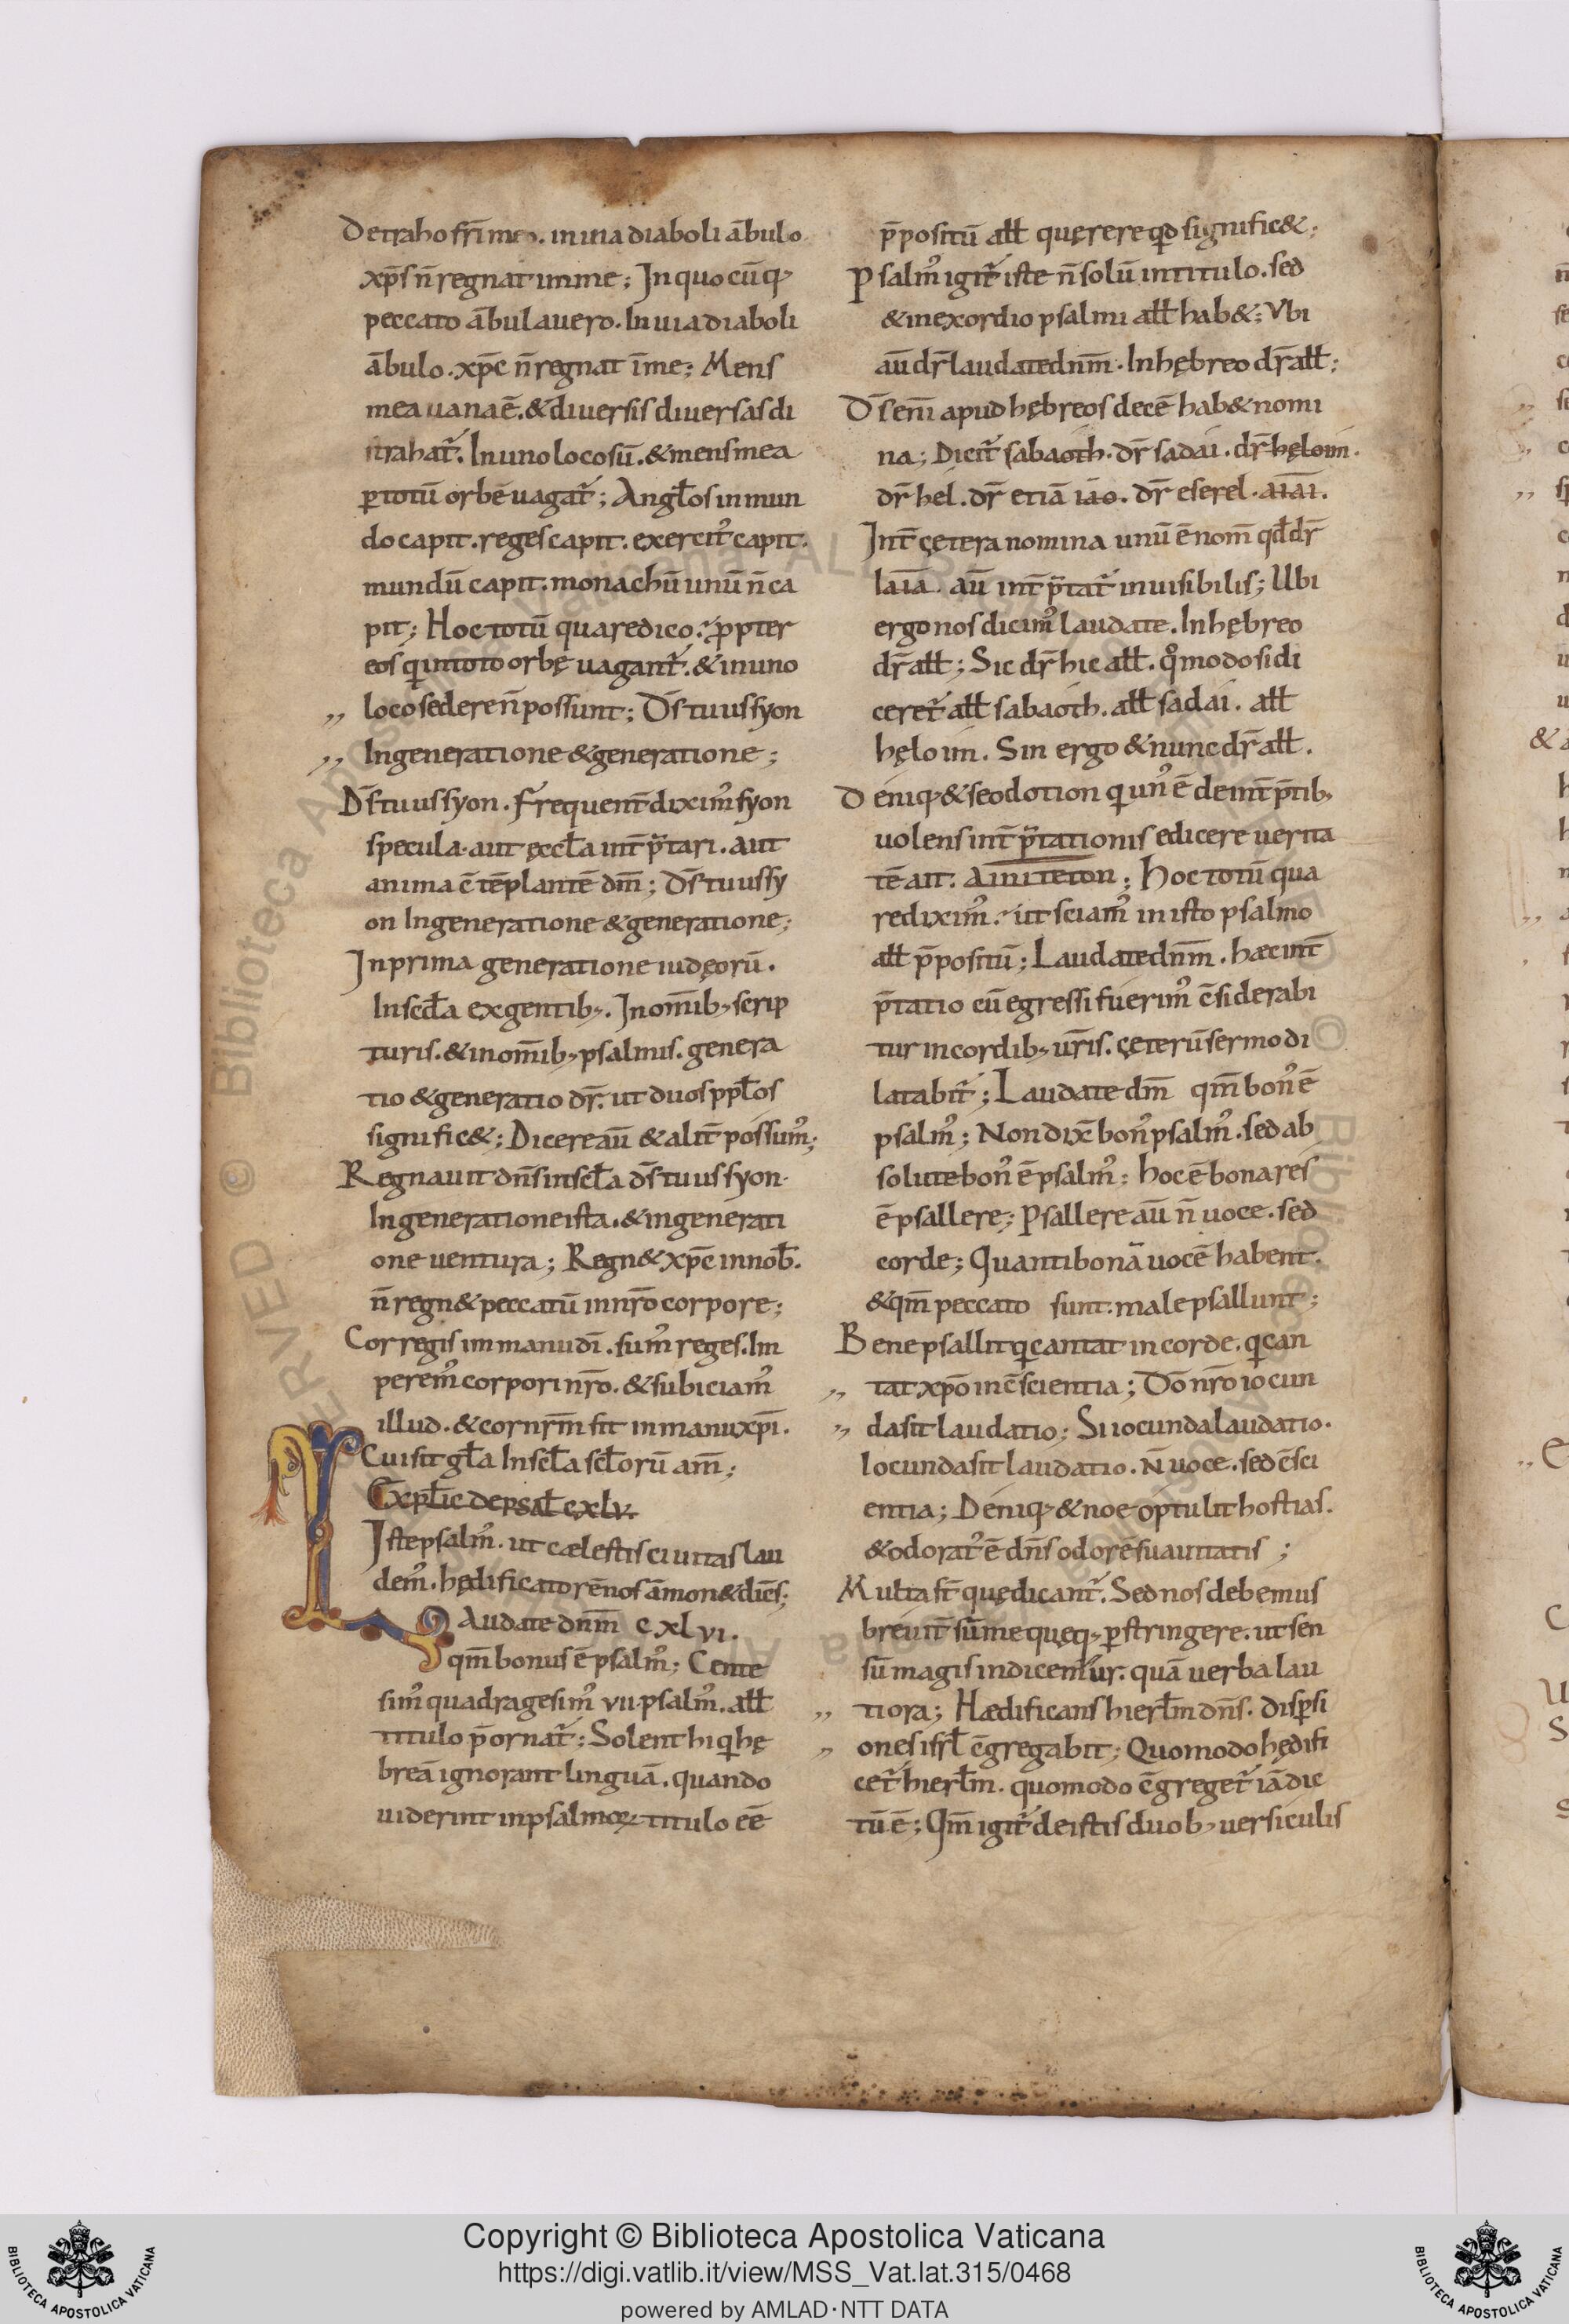 Detraho fr̄i meo. in uia diaboli ābulo
xp̄s n̄ regnat in me; In quo cūq;
peccato ābulauero. In uia diaboli
ābulo. xp̄c n̄ regnat ī me; Mens
mea uana ē. & diuersis diuersas di
strahat᷑. In uno loco sū. & mens mea
ꝑ totū orbē uagat᷑; Angł̄os in mun
do capit. reges capit. exercit᷒ capit.
mundū capit. monachū unū n̄ ca
pit; Hoc totū quare dico? ꝓpter
eos qui in toto orbę uagant᷑. & in uno
,, loco sedere n̄ possunt; D̄s tuus syon
,, In generatione & generatione;
D̄s tuus syon. Frequent̄ dixim᷒ syon
specula. aut ęccl̄a int̄p̄tari. aut
anima c̄tēplantē dm̄; D̄s tuus sy
on In generatione & generatione;
In prima generatione iudęorū.
In scd̄a ex gentib;. In om̄ib; scrip
turis. & in om̄ib; psalmis. genera
tio & generatio dr̄. ut duos ppl̄os
signific&; Dicere aū & alit̄ possum᷒;
Regnauit dn̄s in scl̄a d̄s tuus syon.
In generatione ista. & in generati
one uentura; Regn& xp̄c in nob̄.
n̄ regn& peccatū in nr̄o corpore;
Cor regis in manu dī. sum᷒ reges. Im
perem᷒ corpori nr̄o. & subiciam᷒
illud. & cor nr̄m sit in manu xp̄i.
Cui sit gl̄a In scl̄a scl̄orū am̄;
Expl̄ic de psal̄ cxlv.
Iste psalm᷒. ut cælestis ciuitas lau
dem᷒. hędificatorē nos āmon& diēs;
Laudate dnm̄ c. xlvi.
qm̄ bonus ē psalm᷒; Cente
sim᷒ quadragesim᷒ vii. psalm᷒. all̄
titulo p̄ornat᷑: Solent hi qui hę
breā ignorant linguā. quando
uiderint in psalmoꝝ titulo eē
p̄positū all̄ quęrere qd̄ signific&;
Psalm᷒ igit᷑ iste n̄ solū in titulo. sed
& in exordio psalmi all̄ hab&; Vbi
aū dr̄ laudate dnm̄. In hębreo dr̄ all̄;
D̄s enī apud hębreos decē hab& nomi
na; Dicit᷑ sabaoth. dr̄ sadai. dr̄ hęloim.
dr̄ hel. dr̄ etiā iao. dr̄ eserel. aiai.
Int̄ cętera nomina unū ē nom̄ qd̄ dr̄
Iaia. aū int̄p̄tat᷑ inuisibilis; Ubi
ergo nos dicim᷒ laudate. In hębreo
dr̄ all̄; Sic dr̄ hic all̄. qͦmodo si di
ceret᷑ all̄ sabaoth. all̄ sadai. all̄
hęloim. Sin ergo & nunc dr̄ all̄.
Deniq; & seodotion qui un᷒ ē de int̄p̄tib;
uolens int̄p̄tationis edicere uerita
tē ait. ainiteton; Hoc totū qua
re dixim᷒? ut sciam᷒ in isto psalmo
all̄ p̄positū; Laudate dnm̄. hæc int̄
p̄tatio cū egressi fuerim᷒ c̄siderabi
tur in cordib; ur̄is. cęterū sermo di
latabit᷑; Laudate dm̄ qm̄ bon᷒ ē
psalm᷒; Non dix̄ bon᷒ psalm᷒. sed ab
solute bon᷒ ē psalm᷒: hoc ē bona res
ē psallere; Psallere aū n̄ uoce. sed
corde; Quanti bonā uocē habent.
& qm̄ peccato sunt. male psallunt;
Bene psallit qui cantat in corde. qui can
,, tat xp̄o in c̄scientia; Dō nr̄o iocun
,, da sit laudatio; Si iocunda laudatio.
Iocunda sit laudatio. N̄ uoce. sed c̄sci
entia; Deniq; & noe optulit hostias.
& odorat᷒ ē dn̄s odorē suauitatis;
Multa st̄ quę dicant᷑. Sed nos debemus
breuit̄ sūme quęq; ꝑstringere. ut sen
sū magis indicemur. quā uerba lau
,, tiora; Hædificans hierl̄m dn̄s. disꝑsi
,, ones isrl̄ c̄gregabit; Quomodo hędifi
cet᷑ hierl̄m. quomodo c̄greget᷑ iā dic
tū ē; Qm̄ igit᷑ de istis duob; uersiculis
Copyright © Biblioteca Apostolica Vaticana
https://digi.vatlib.it/view/MSS_Vat.lat.315/0468
powered by AMLAD·NTT DATA
BIBLIOTECA APOSTOLICA VATICANA
BIBLIOTECA APOSTOLICA VATICANA